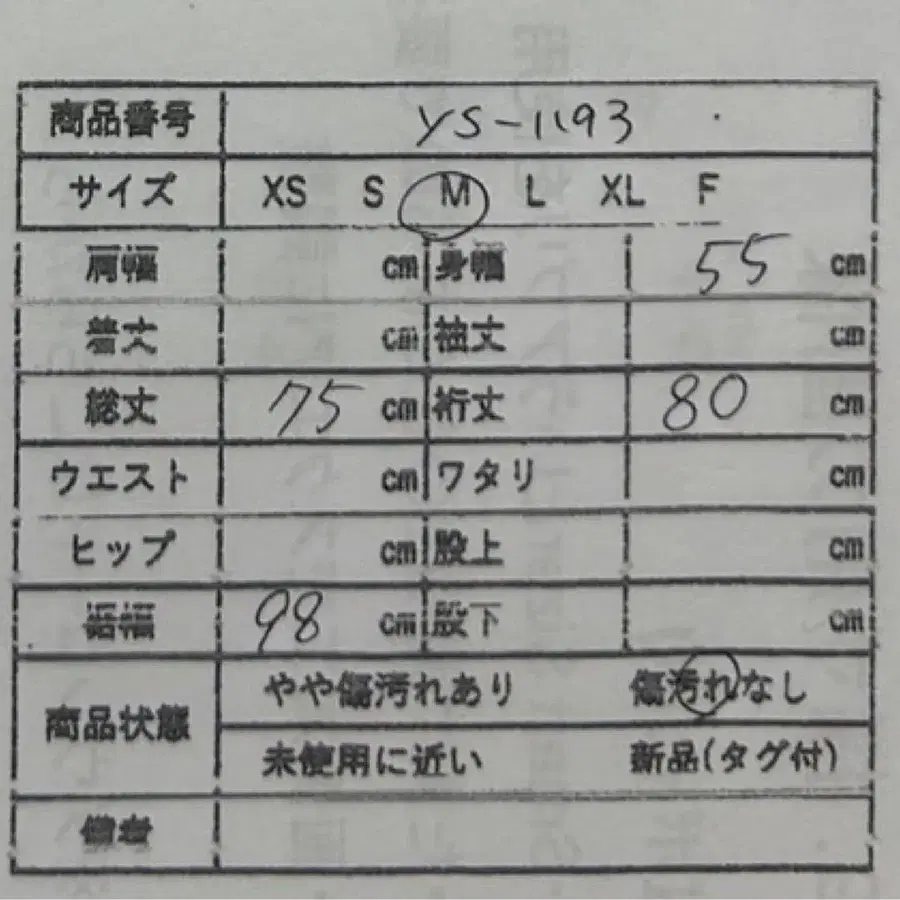 商品番号 YS-1193
サイズ XS S M L XL F
肩幅 cm 身幅 55 cm
着丈 cm 袖丈 cm
総丈 75 cm 裄丈 80 cm
ウエスト cm ワタリ cm
ヒップ cm 股上 cm
裾幅 98 cm 股下 cm
商品状態 やや傷汚れあり 傷汚れなし
未使用に近い 新品(タグ付)
備考